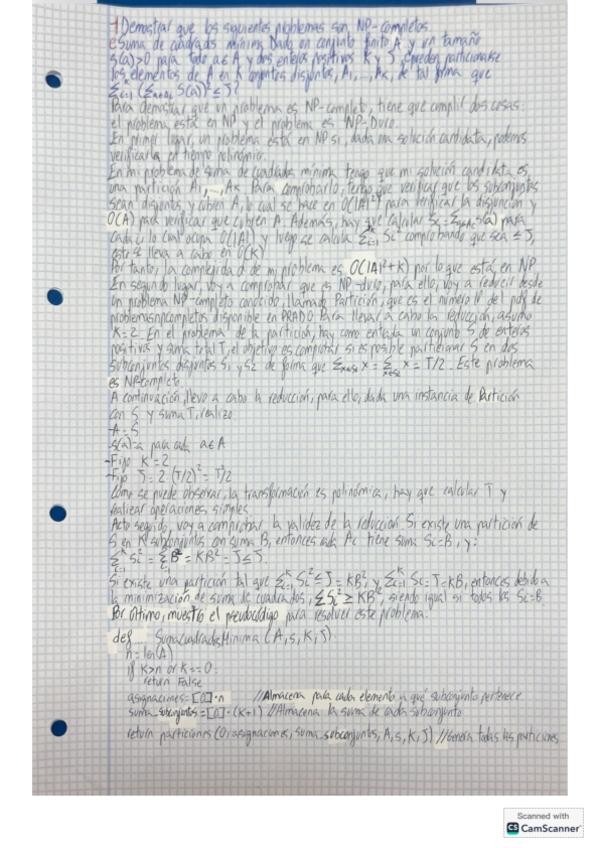 1) Demostrar que los siguientes problemas son NP-completos.
e Suma de cuadrados mínima. Dado un conjunto finito A y un tamaño
s(a)>0 para todo a∈A y dos enteros positivos K y J, ¿pueden particionarse
los elementos de A en K conjuntos disjuntos, A1,..., AK, de tal forma que
Σi=1^K (Σa∈Ai S(a))² ≤ J?
Para demostrar que un problema es NP-completo, tiene que cumplir dos cosas:
el problema está en NP y el problema es NP-Duro.
En primer lugar, un problema está en NP si, dada una solución candidata, podemos
verificarla en tiempo polinómico.
En mi problema de suma de cuadrados mínima tengo que mi solución candidata es
una partición A1,..., AK. Para comprobarlo, tengo que verificar que los subconjuntos
sean disjuntos, y cubren A, lo cual se hace en O(|A|²) para verificar la disjunción y
O(A) para verificar que cubren A. Además, hay que calcular Si=Σa∈Ai s(a) para
cada i, lo cual ocupa O(|A|) y luego se calcula Σi=1^K Si² comprobando que sea ≤ J,
esto se lleva a cabo en O(K)
Por tanto, la complejidad de mi problema es O(|A|²+K) por lo que está en NP
En segundo lugar, voy a comprobar que es NP-duro, para ello, voy a reducir desde
un problema NP-completo conocido, llamado Partición, que es el número 11 del pdf de
problemasnpcompletos disponible en PRADO. Para llevar a cabo la reducción, asumo
K=2. En el problema de la partición, hay como entrada un conjunto S de enteros
positivos y suma total T, el objetivo es computar si es posible particionar S en dos
subconjuntos disjuntos S1 y S2 de forma que Σx∈S1 x = Σx∈S2 x = T/2. Este problema
es NP-completo.
A continuación, llevo a cabo la reducción, para ello, dada una instancia de Partición
con S y suma T, realizo:
-A=S
-s(a)=a para cada a∈A
-Fijo K=2
-Fijo J=2·(T/2)²=T²/2
Como se puede observar, la transformación es polinómica, hay que calcular T y
realizar operaciones simples.
Acto seguido, voy a comprobar la validez de la reducción. Si existe una partición de
S en K subconjuntos con suma B, entonces cada Ai tiene suma Si=B, y:
Σi=1^K Si² = Σi=1^K B² = KB² = J ≤ J.
Si existe una partición tal que Σi=1^K Si² ≤ J = KB², y Σi=1^K Si = J=KB, entonces debido a
la minimización de suma de cuadrados, ΣSi² ≥ KB², siendo igual si todos los Si=B
Por último, muestro el pseudocódigo para resolver este problema:
def SumaCuadradosMinima (A, s, K, J):
n=len(A)
if K>n or K==0:
return False
asignaciones=[0]*n //Almacena para cada elemento a qué subconjunto pertenece
suma_subconjuntos=[0]*(K+1) //Almacena la suma de cada subconjunto
return particiones(0, asignaciones, suma_subconjuntos, A, s, K, J) //Genera todas las particiones
Scanned with
CS CamScanner